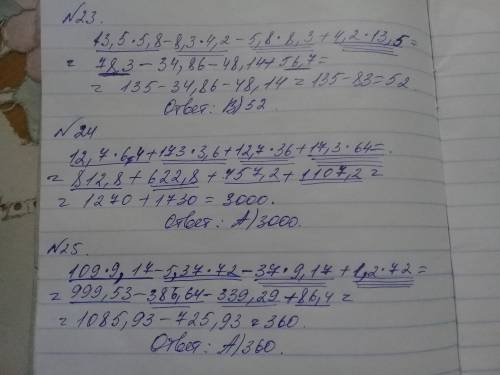 №23.
13,5·5,8-8,3·4,2-5,8·8,3+4,2·13,5=
= 78,3-34,86-48,14+56,7=
= 135-34,86-48,14=135-83=52
Ответ: В)52.
№24
12,7·6,4+173·3,6+12,7·36+17,3·64=
= 812,8+622,8+457,2+1107,2=
= 1270+1730=3000.
Ответ: А)3000.
№25.
109·9,17-5,37·72-37·9,17+1,2·72=
= 999,53-386,64-339,29+86,4=
= 1085,93-725,93=360.
Ответ: А)360.